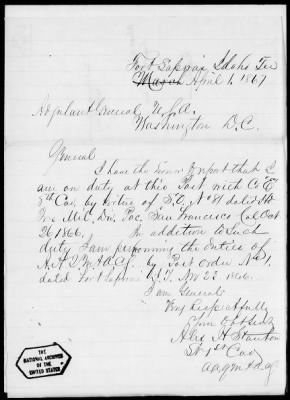 Fort Lapwai Idaho Ter
March April 1. 1867
Adjutant General U.S.A.
Washington D.C.
General
I have the honor to report that I
am on duty at this Post with Co "E"
8th Cav, by virtue of S.O. No 81 dated Hd
Qrs Mil. Div. Pac. San Francisco Cal Oct
26 1866. In addition to such
duty I am performing the duties of
A.A.Q.M. & A.C.S. by Post order No 1,
dated Fort Lapwai I.T. Nov 23 1866.
I am General
Very Respectfully
Your Obt Svt
Alex H Stanton
Lt 1st Cav
a a q m & a c s
THE
NATIONAL ARCHIVES
OF THE
UNITED STATES